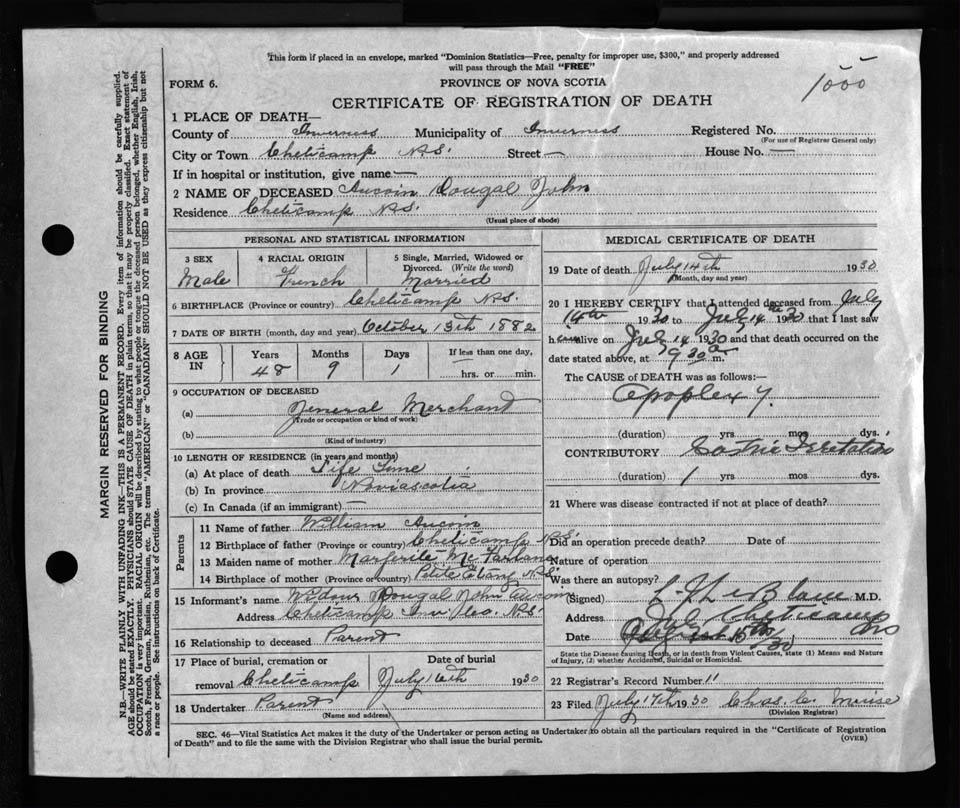 This form if placed in an envelope, marked "Dominion Statistics—Free, penalty for improper use, $300," and properly addressed
will pass through the Mail "FREE"
1000
FORM 6.
PROVINCE OF NOVA SCOTIA
CERTIFICATE OF REGISTRATION OF DEATH
1 PLACE OF DEATH—
County of Inverness Municipality of Inverness Registered No.
(For use of Registrar General only)
City or Town Cheticamp N.S. Street — House No. —
If in hospital or institution, give name —
2 NAME OF DECEASED Aucoin Dougal John
Residence Cheticamp N.S.
(Usual place of abode)
PERSONAL AND STATISTICAL INFORMATION
3 SEX
Male
4 RACIAL ORIGIN
French
5 Single, Married, Widowed or
Divorced. (Write the word)
Married
6 BIRTHPLACE (Province or country) Cheticamp N.S.
7 DATE OF BIRTH (month, day and year) October 13th 1882
8 AGE IN
Years 48
Months 9
Days 1
If less than one day,
hrs. or min.
9 OCCUPATION OF DECEASED
(a) General Merchant
(Trade or occupation or kind of work)
(b)
(Kind of industry)
10 LENGTH OF RESIDENCE (in years and months)
(a) At place of death Life Time
(b) In province Novascotia
(c) In Canada (if an immigrant) —
Parents
11 Name of father William Aucoin
12 Birthplace of father (Province or country) Cheticamp N.S.
13 Maiden name of mother Margerite McFarlane
14 Birthplace of mother (Province or country) Petite Etang N.S.
15 Informant's name Dougal John Aucoin
Address Cheticamp Inv Co. N.S.
16 Relationship to deceased Parent
17 Place of burial, cremation or
removal Cheticamp
Date of burial
July 16th 1930
18 Undertaker Parent
(Name and address)
MEDICAL CERTIFICATE OF DEATH
19 Date of death July 14th 1930
(Month, day and year)
20 I HEREBY CERTIFY that I attended deceased from July
14th 1930 to July 14th 1930 that I last saw
him alive on July 14 1930 and that death occurred on the
date stated above, at 9 30 a m.
The CAUSE OF DEATH was as follows:—
Apoplexy.
(duration) yrs mos dys.
CONTRIBUTORY
(duration) 1 yrs mos dys.
21 Where was disease contracted if not at place of death?
Did an operation precede death? Date of
Nature of operation
Was there an autopsy?
(Signed) LeBlanc M.D.
Address Cheticamp
Date 15th
State the Disease causing Death, or in death from Violent Causes, state (1) Means and Nature
of Injury, (2) whether Accidental, Suicidal or Homicidal.
22 Registrar's Record Number 11
23 Filed July 17th 1930 Chas. C. Muise
(Division Registrar)
SEC. 46—Vital Statistics Act makes it the duty of the Undertaker or person acting as Undertaker to obtain all the particulars required in the "Certificate of Registration
of Death" and to file the same with the Division Registrar who shall issue the burial permit.
(OVER)
MARGIN RESERVED FOR BINDING
N.B.—WRITE PLAINLY WITH UNFADING INK—THIS IS A PERMANENT RECORD. Every item of information should be carefully supplied.
AGE should be stated EXACTLY. PHYSICIANS should STATE CAUSE OF DEATH in plain terms, so that it may be properly classified. Exact statement of
OCCUPATION is very important. RACIAL ORIGIN will be described by stating to what people or tongue the deceased person belonged, whether English, Irish,
Scotch, French, German, Russian, Ruthenian, etc. The terms "AMERICAN" or "CANADIAN" SHOULD NOT BE USED as they express citizenship but not
a race or people. See instructions on back of Certificate.